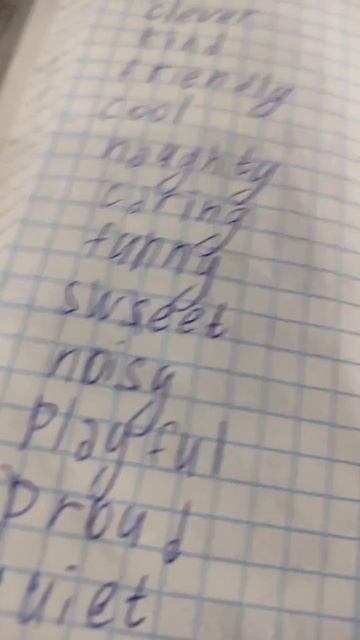 clever
kind
friendly
cool
naughty
caring
funny
swseet
noisy
playful
proud
uiet